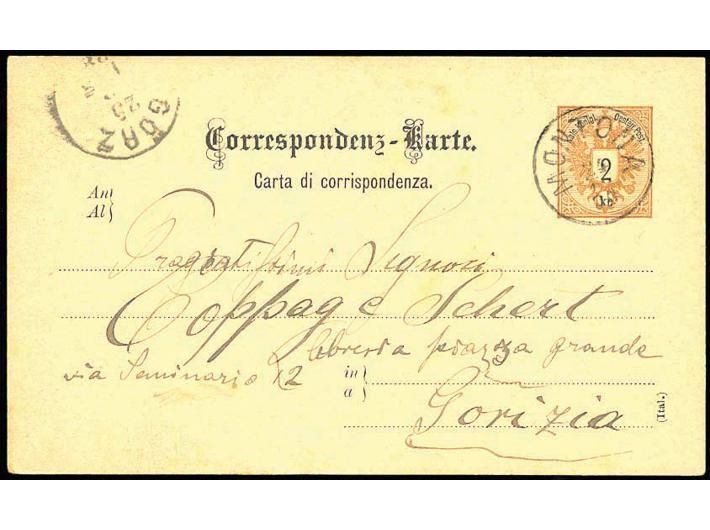 GÖRZ
25
Correspondenz-Karte.
Carta di corrispondenza.
MONTONA
2
kr
An
Al
Pregiatissimi Signori
Coppag e Schert
libreria piazza grande
via Seminario 12
in
a
Gorizia
(Ital.)